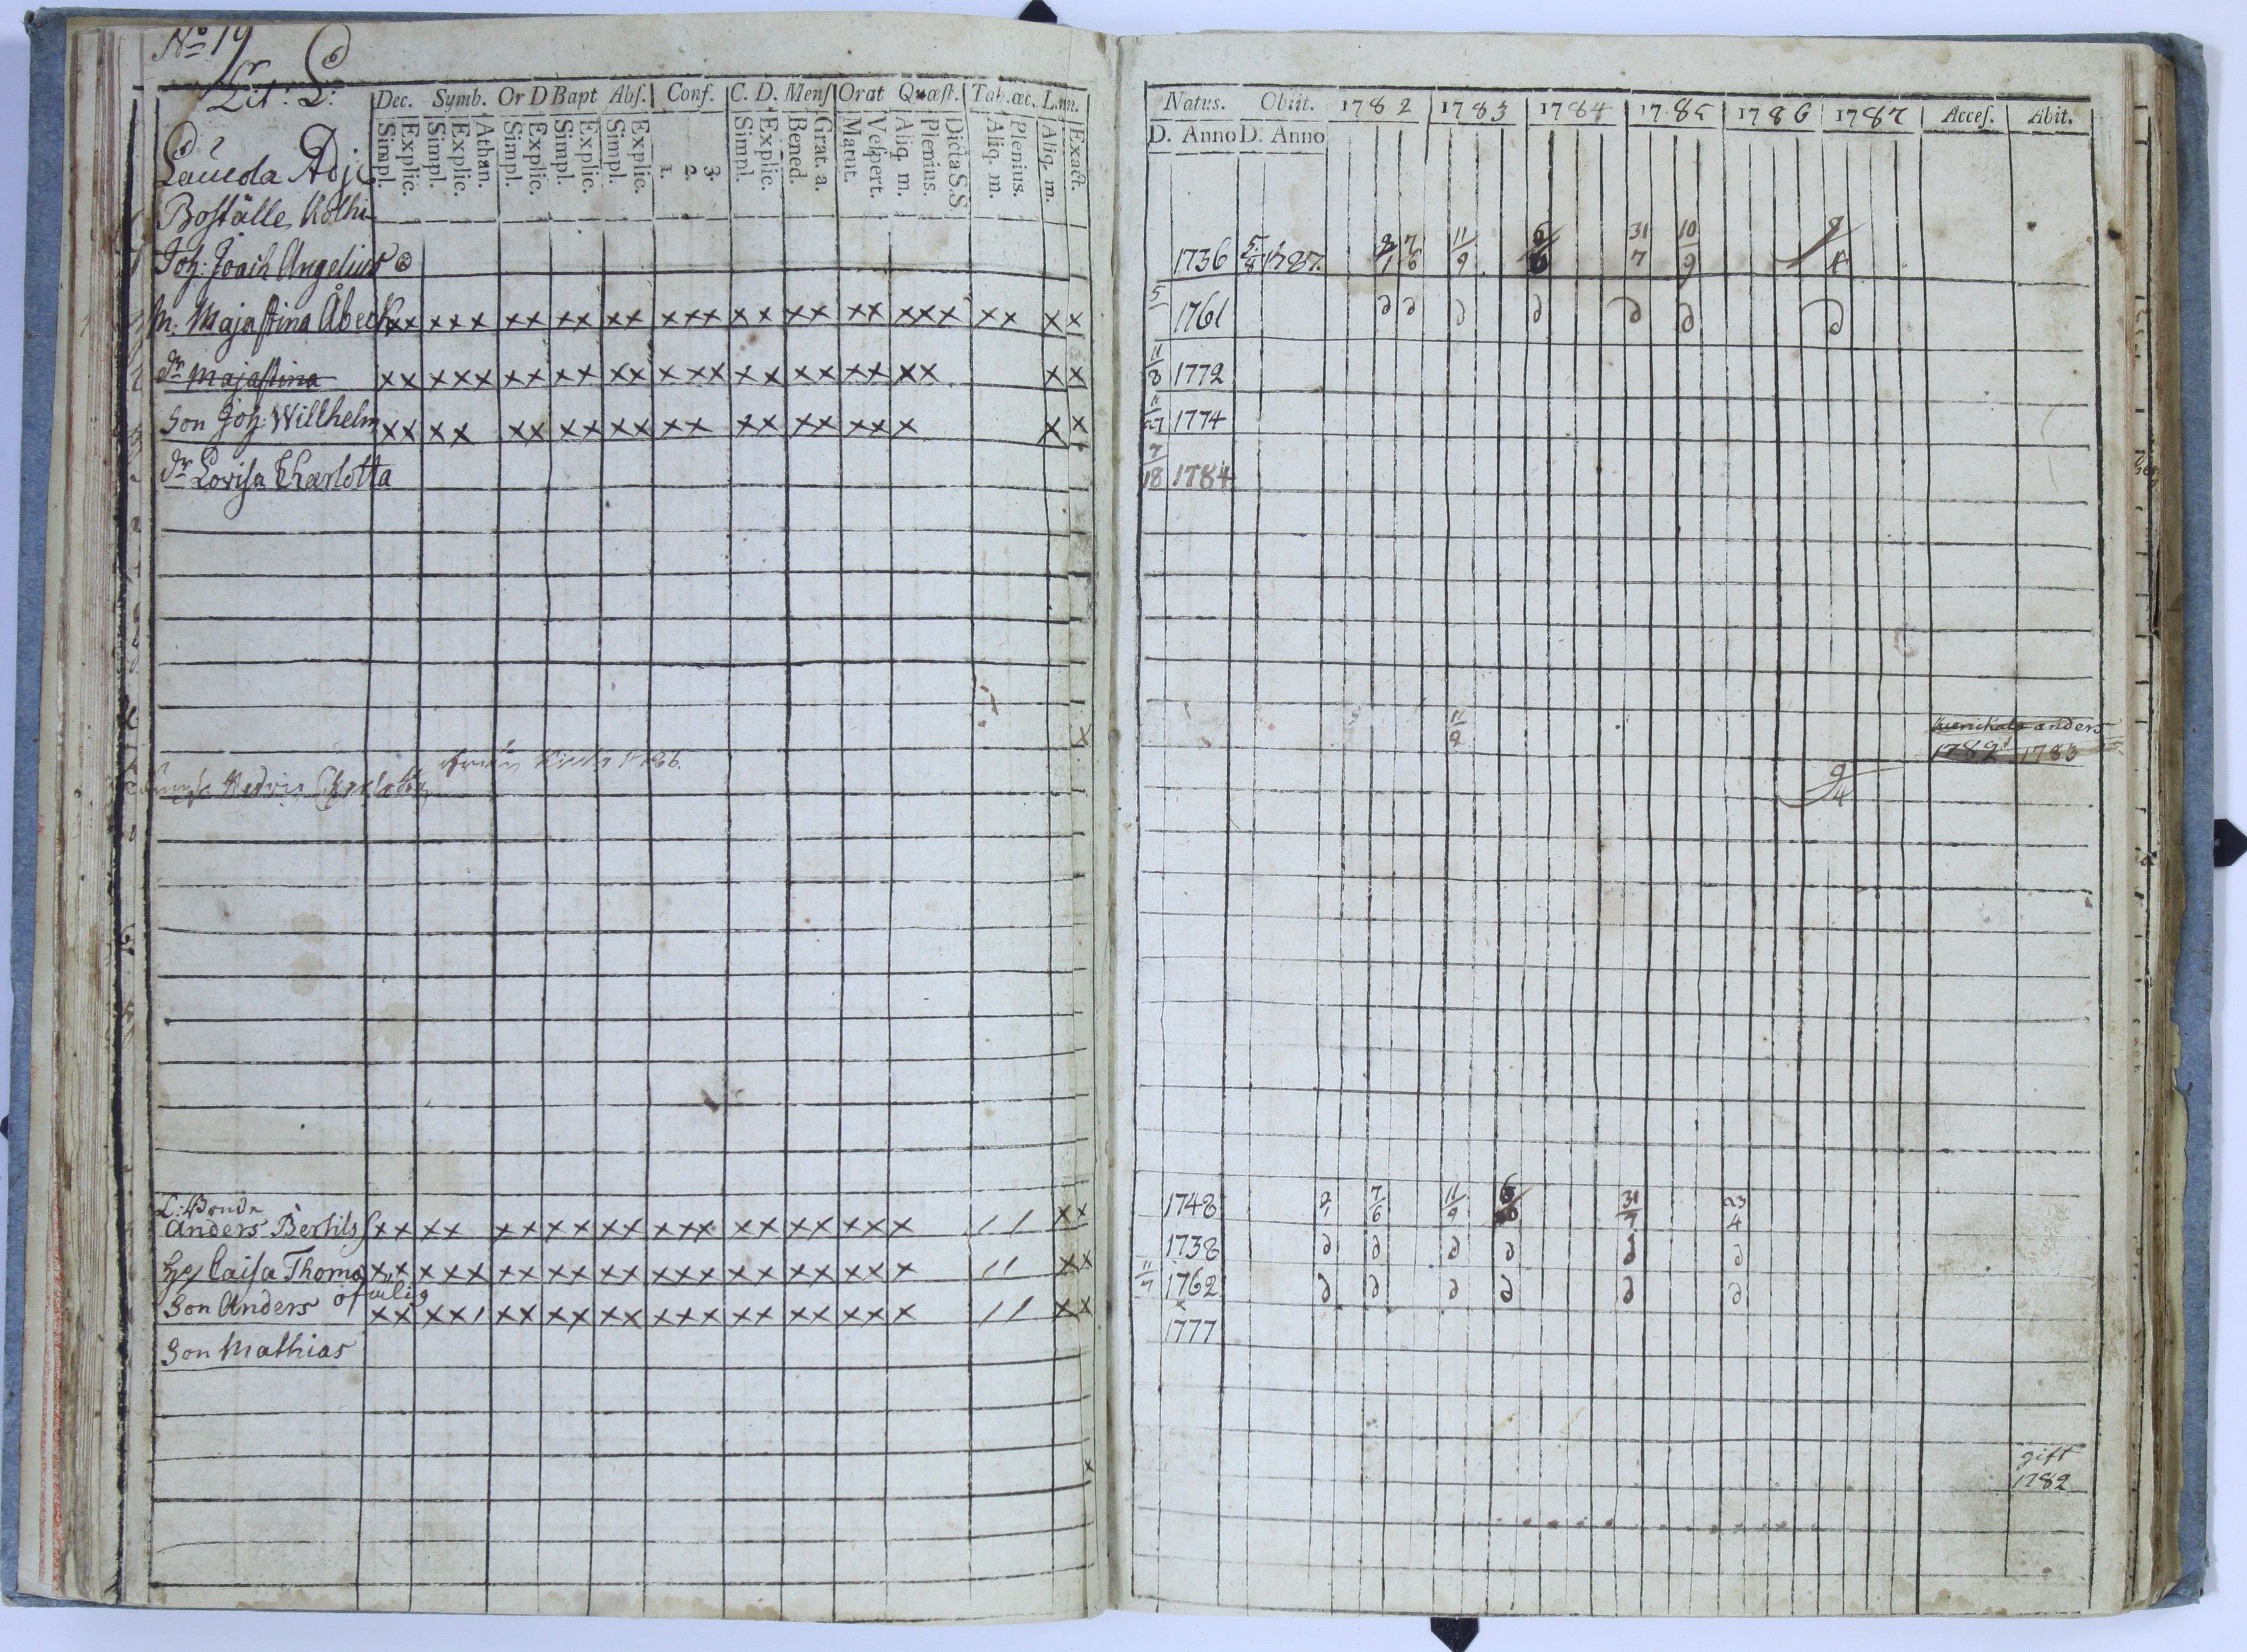 No 19
Lit: L:
Dec. Symb. Or D Bapt Abs. Conf. C. D. Mens Orat Quæst. Tab. œc.
Simpl. Explic. Simpl. Explic. Athan. Simpl. Explic. Simpl. Explic. Simpl. Explic. 1. 2. 3. Simpl. Explic. Bened. Grat. a. Matut. Vespert. Aliq m. Plenius. Dicta S.S Aliq. m. Plenius. Aliq. m. Exact.
Laucola Adj:
Boställe
Joh: Joach Angelius
M. Majastina Åbeck xx xxx xx xx xx xxx xx xx xx xxx xx x x
dr Majastina xx xxx xx xx xx xxx xx xx xx xx x x
Son Joh: Willhelm xx xx xx xx xx xx xx xx xx x x x
dr Lovisa Charlotta
x
Hedvig Charlotta
L: Bonde
Anders Bertils xx xx xx xx xx xxx xx xx xx x / / x x
Caisa Thoma xx xxx xx xx xx xxx xx xx xx x / / x x
Son Anders xx xx/ xx xx xx xxx xx xx xx x / / x x
Son Mathias
x
Natus. Obiit. 1782 1783 1784 1785 1786 1787 Acces. Abit.
D. Anno D. Anno
1736 5/8 1787. 7/6 11/9 31/7 10/9 9/4
5 1761 ∂ ∂ ∂ ∂ ∂ ∂ ∂
11/8 1772
11/27 1774
7/18 1784
11/9 anders
1782 1783
9/4
1748 2/1 7/6 11/9 31/7 23/4
1738 ∂ ∂ ∂ ∂ ∂ ∂
11/7 1762 ∂ ∂ ∂ ∂ ∂ ∂
x
1777
gift
1782